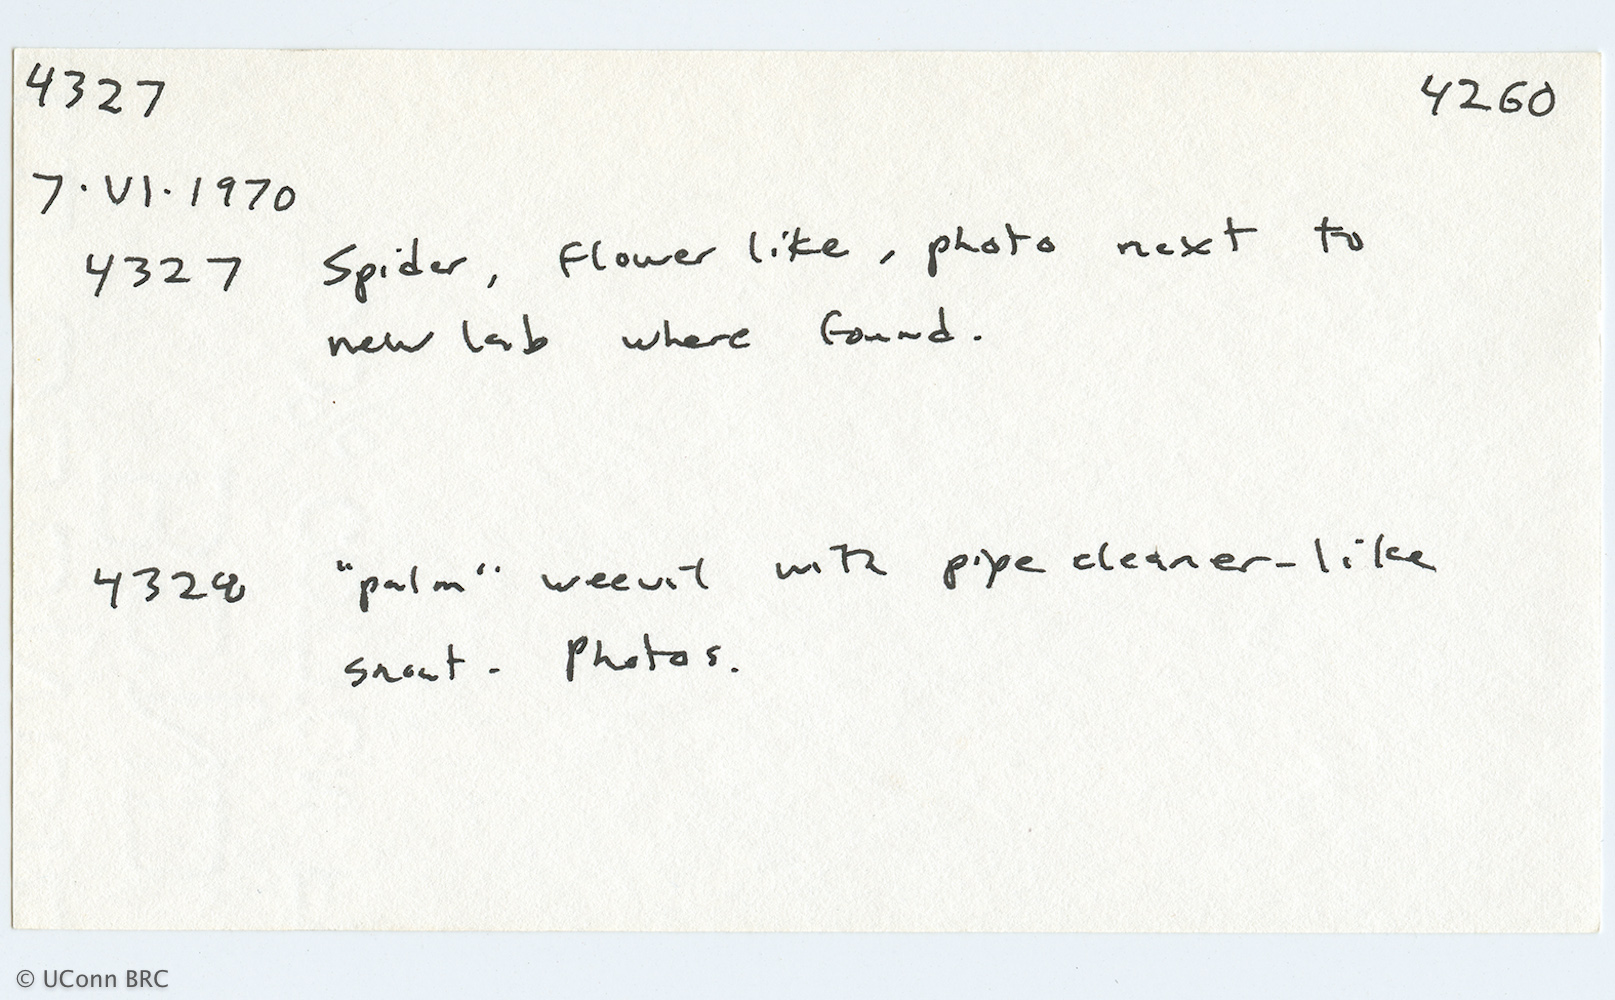 4327 4260
7.VI.1970
4327 Spider, flower like, photo next to
new lab where found.
4328 "palm" weevil with pipe cleaner-like
snout. Photos.
© UConn BRC